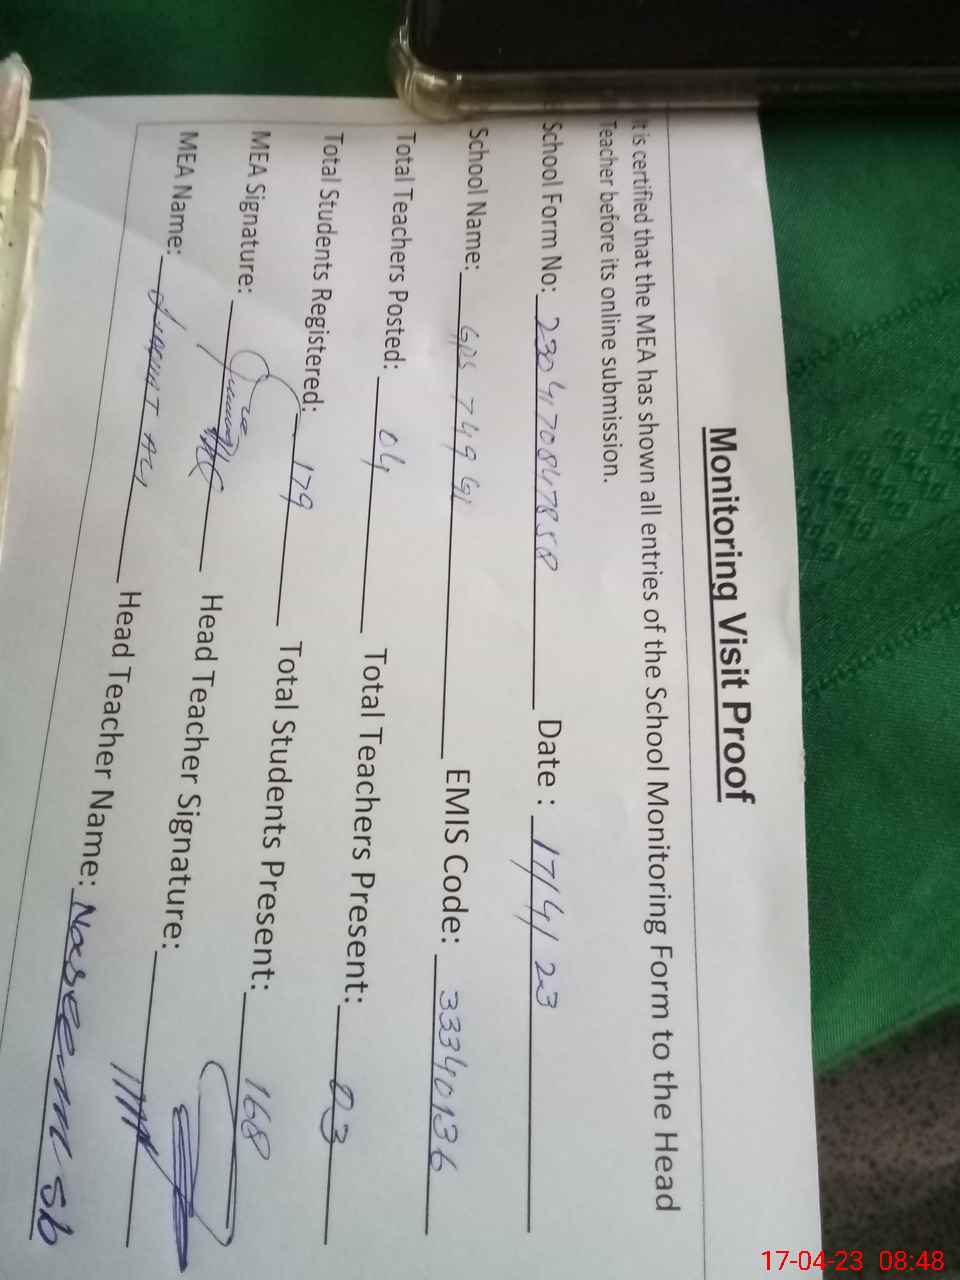 Monitoring Visit Proof
It is certified that the MEA has shown all entries of the School Monitoring Form to the Head
Teacher before its online submission.
School Form No: 2304170847858 Date : 17/4/23
School Name: GPS 749 GB EMIS Code: 33340136
Total Teachers Posted: 04 Total Teachers Present: 03
Total Students Registered: 179 Total Students Present: 168
MEA Signature: Head Teacher Signature:
MEA Name: Ali Head Teacher Name: Naseem Sb
17-04-23 08:48